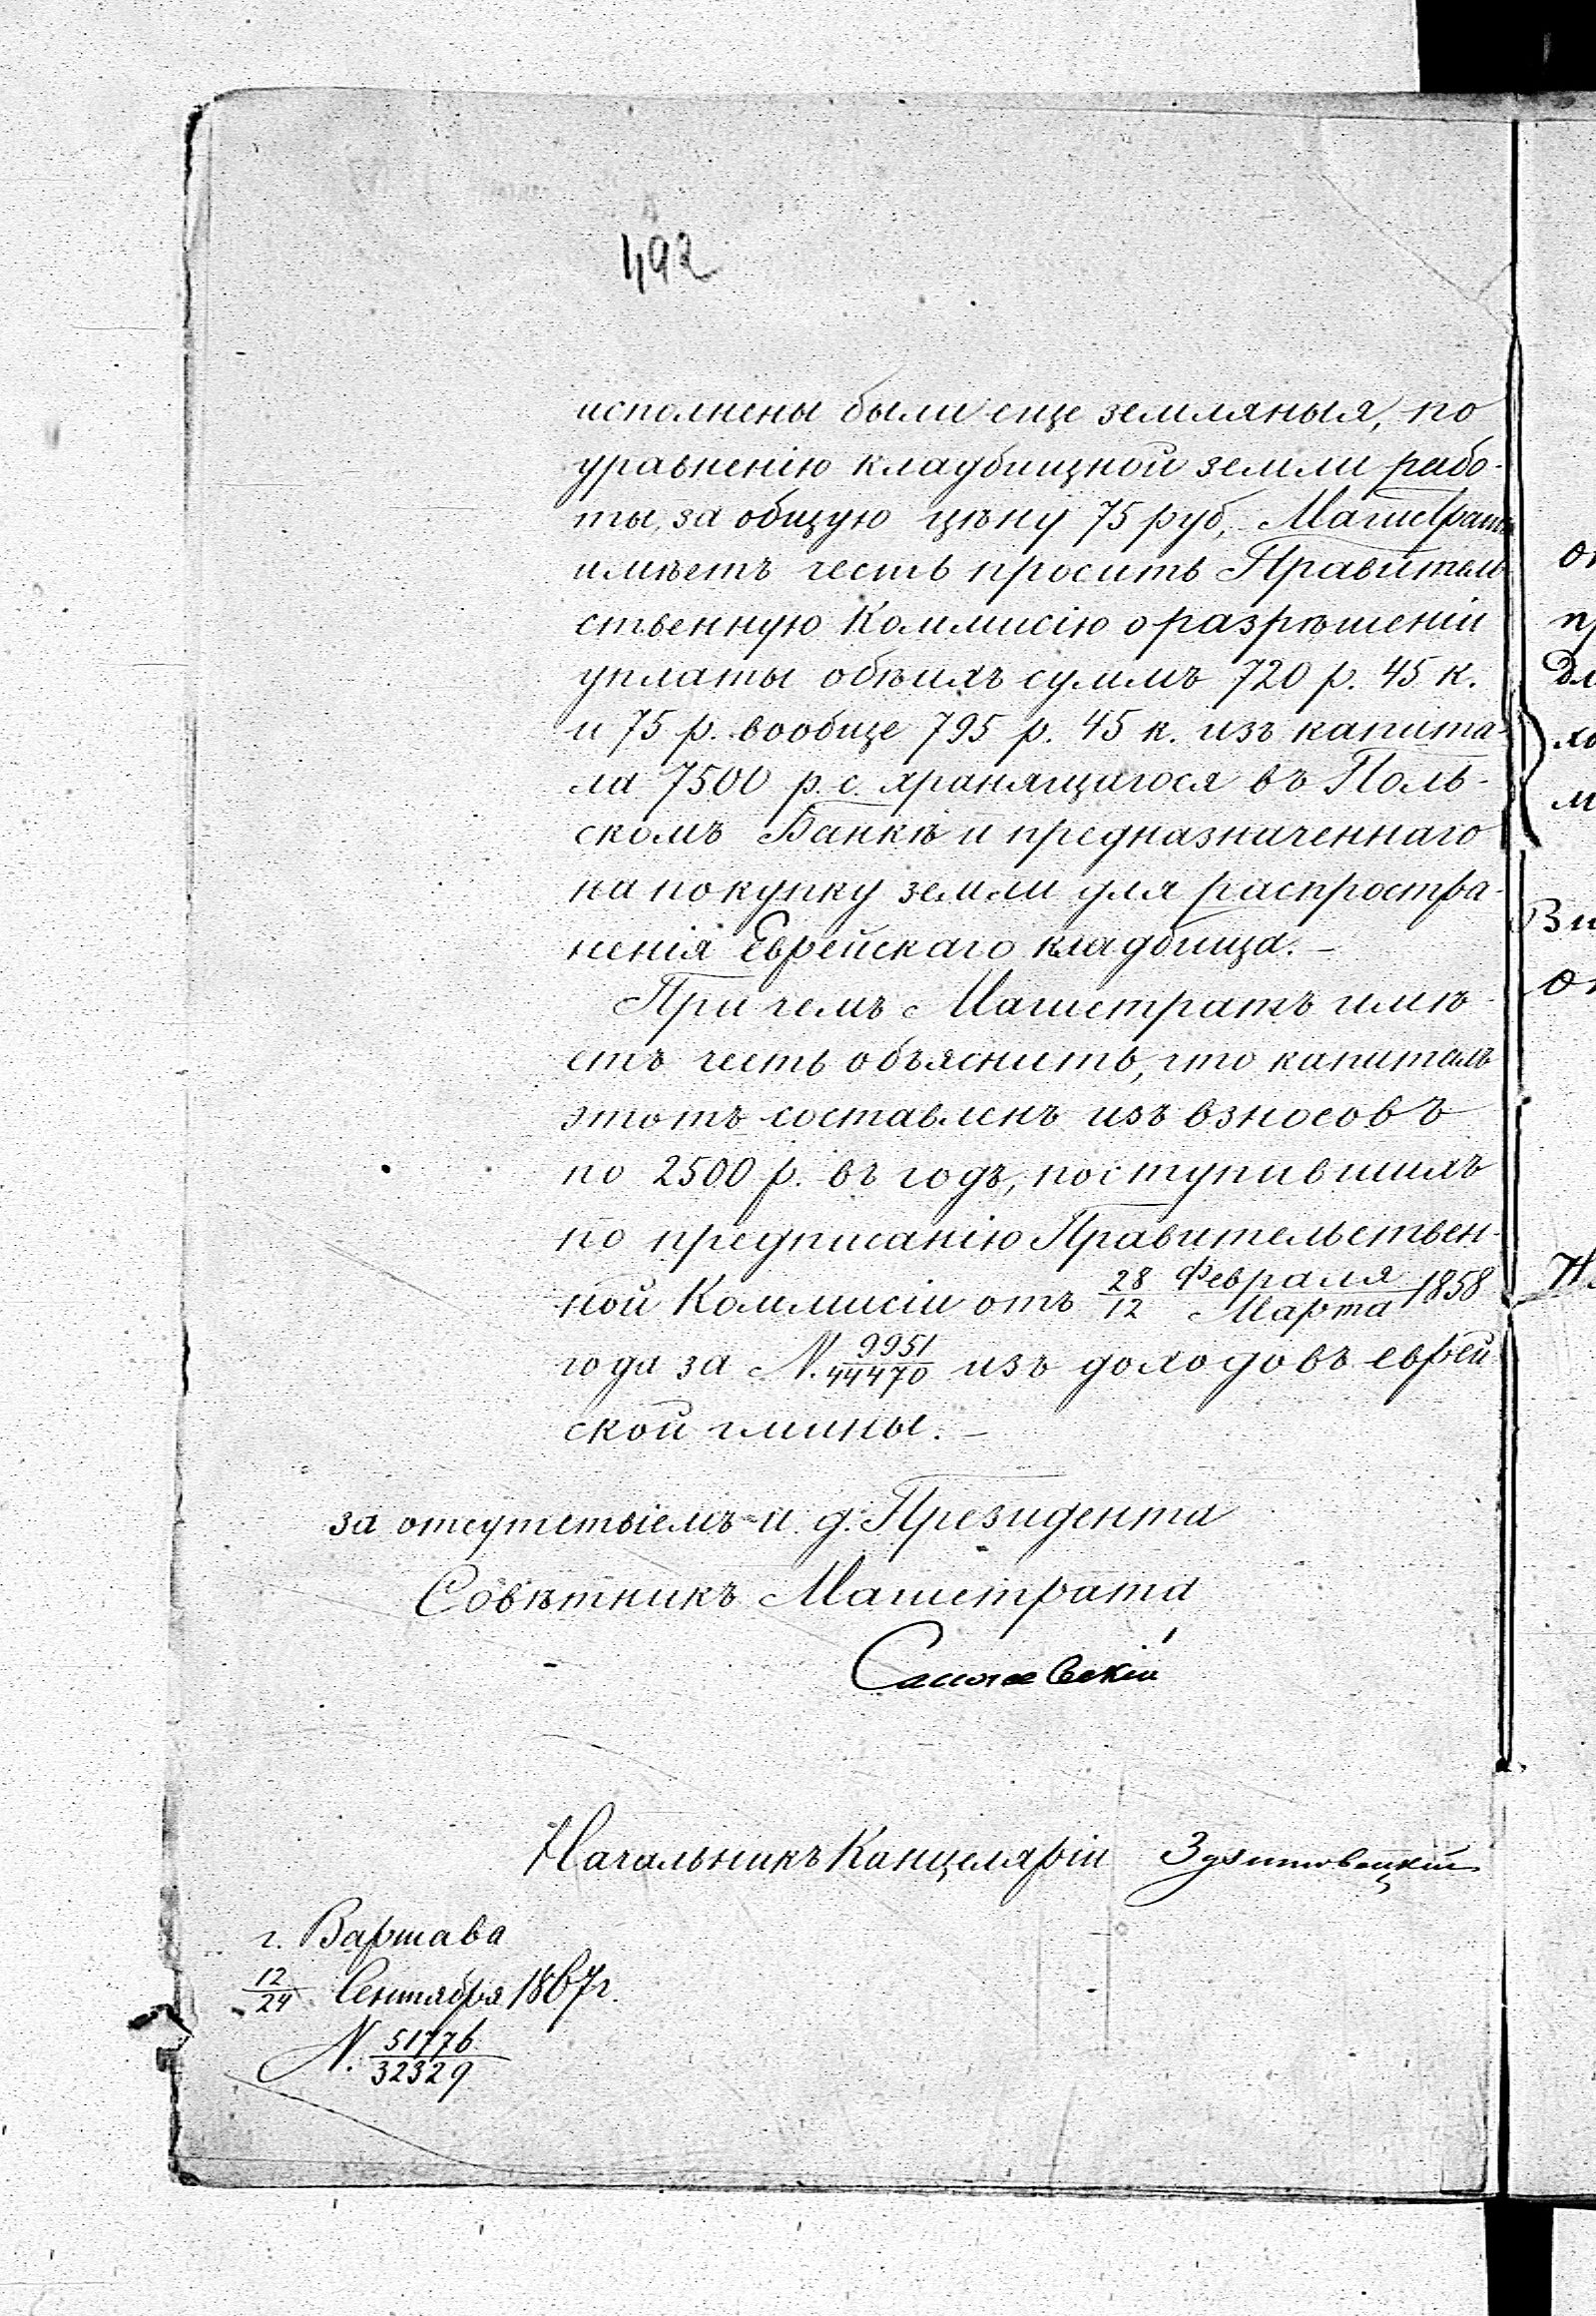 492
исполнены были еще земляныя, по
уравненію кладбищной земли рабо-
ты, за общую цѣну 75 руб, Магистратъ
имѣетъ честь просить Правитель
ственную Коммисію о разрѣшеніи
уплаты обѣихъ суммъ 720 р. 45 к.
и 75 р. вообще 795 р. 45 к. изъ капита-
ла 7500 р. с. хранящагося въ Поль-
скомъ Банкѣ и предназначеннаго
на покупку земли для распростра-
ненія Еврейскаго кладбища. —
При чемъ Магистратъ имѣ-
етъ честь объяснить, что капиталъ
этотъ составленъ изъ взносовъ
по 2500 р. въ годъ, поступившихъ
по предписанію Правительствен-
ной Коммисіи отъ 28/12 Февраля/Марта 1858
года за N. 9951/44470 изъ доходовъ еврей
ской гмины. —
за отсутствіемъ и. д. Президента
Совѣтникъ Магистрата
Начальникъ Канцеляріи
г. Варшава
12/24 Сентября 1867 г.
N. 51776/32329